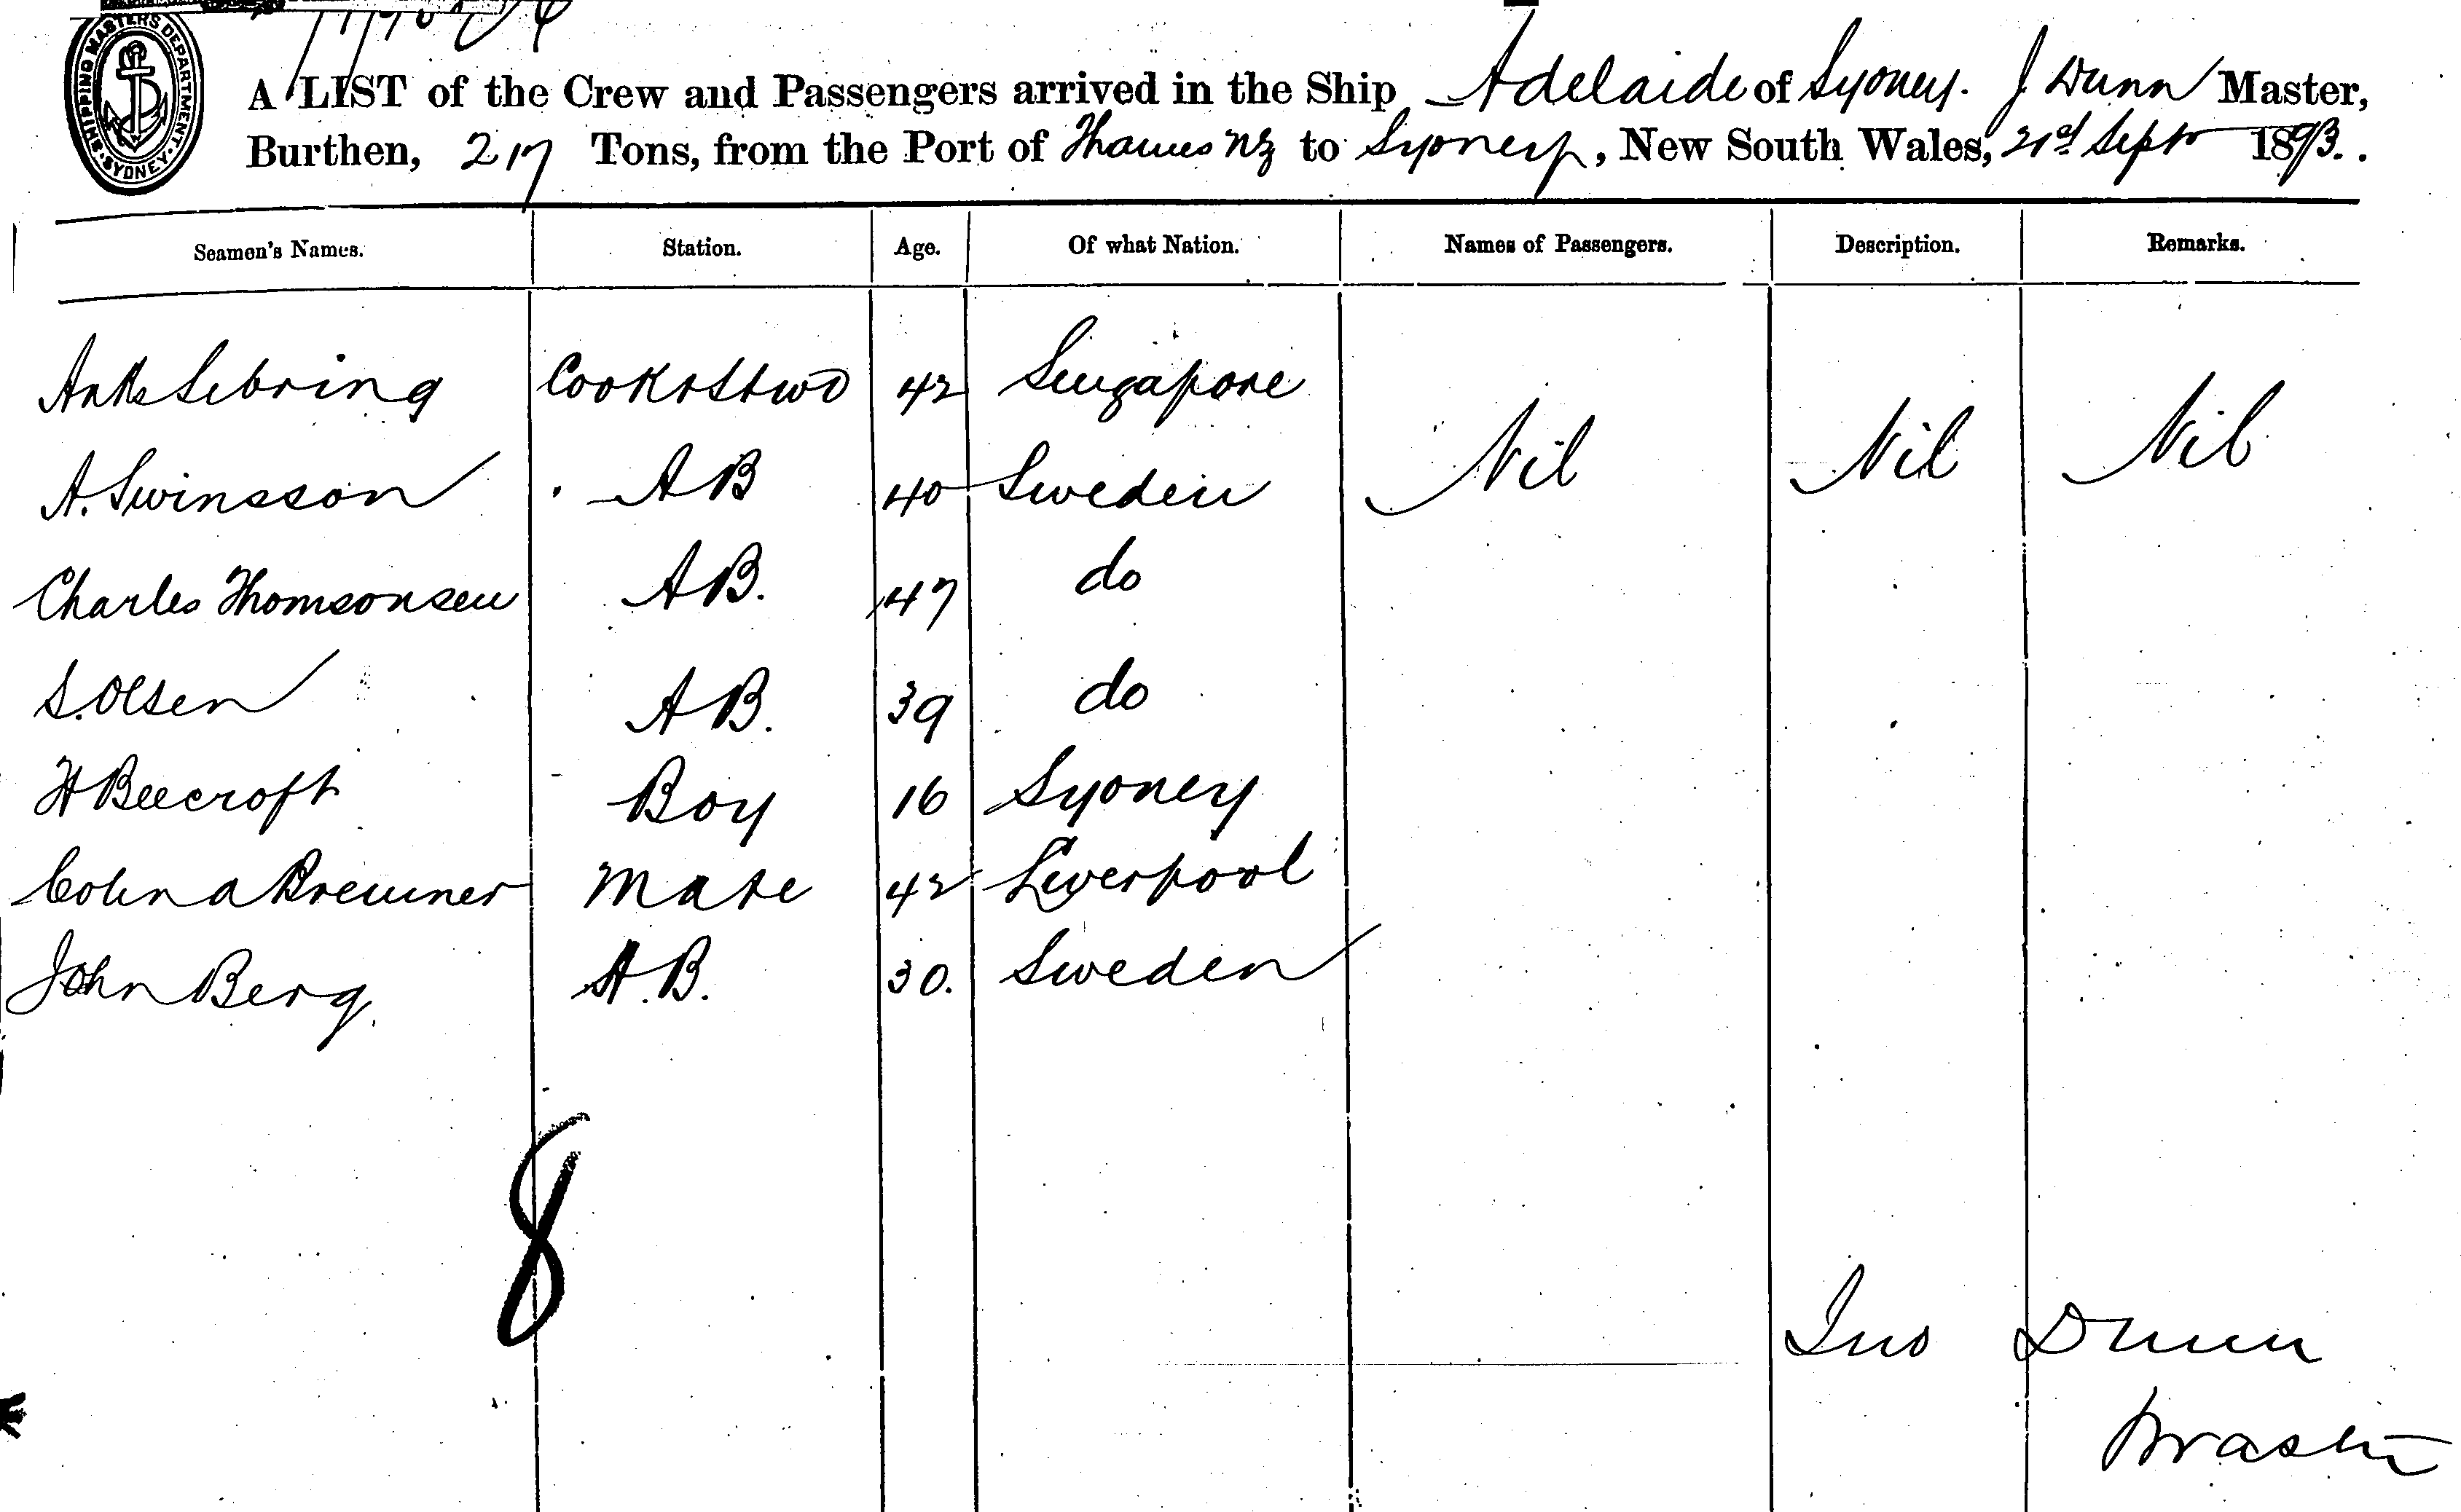 SHIPPING MASTERS DEPARTMENT. SYDNEY.
A LIST of the Crew and Passengers arrived in the Ship Adelaide of Sydney. J Dunn Master,
Burthen, 217 Tons, from the Port of Thames NZ to Sydney, New South Wales, 21st Septr 1893.
Seamen's Names. Station. Age. Of what Nation. Names of Passengers. Description. Remarks.
Sebring Cook & Stwd 42 Singapore Nil Nil Nil
A. Swinsson AB 40 Sweden
Charles Thomsonsen AB. 47 do
S. Olsen AB. 39 do
H Beecroft Boy 16 Sydney
Colin A Bremner Mate 42 Liverpool
John Berg. A.B. 30. Sweden
8
Jno Dunn
Master